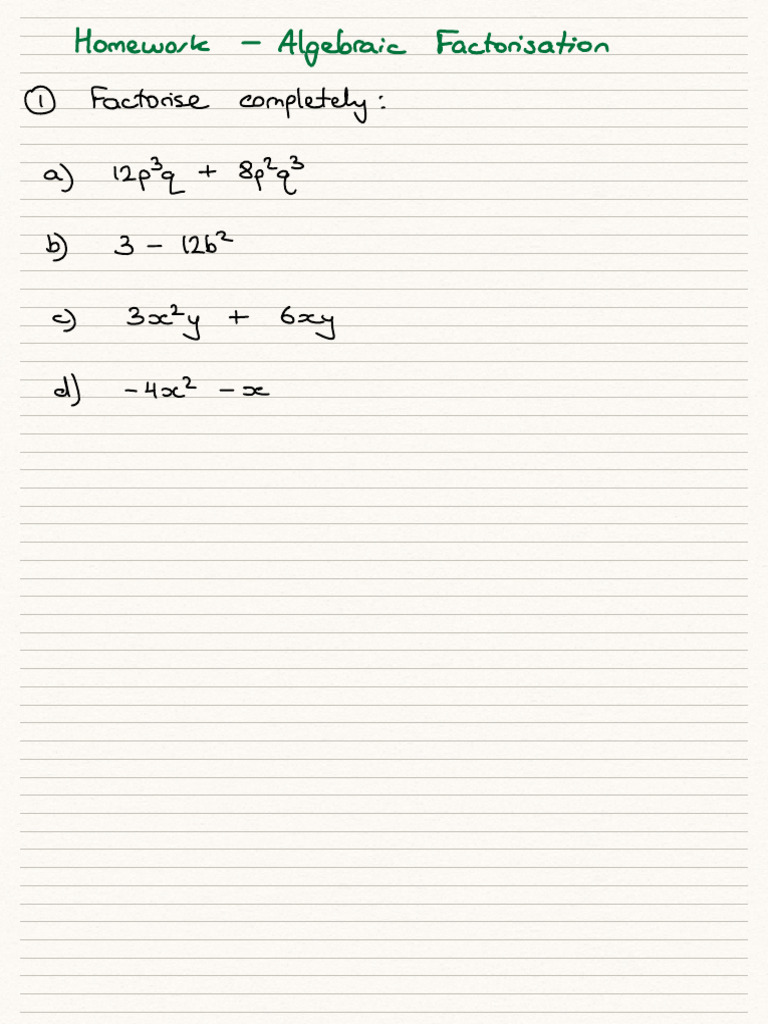 Homework - Algebraic Factorisation
① Factorise completely:
a) 12p³q + 8p²q³
b) 3 - 12b²
c) 3x²y + 6xy
d) -4x² - x